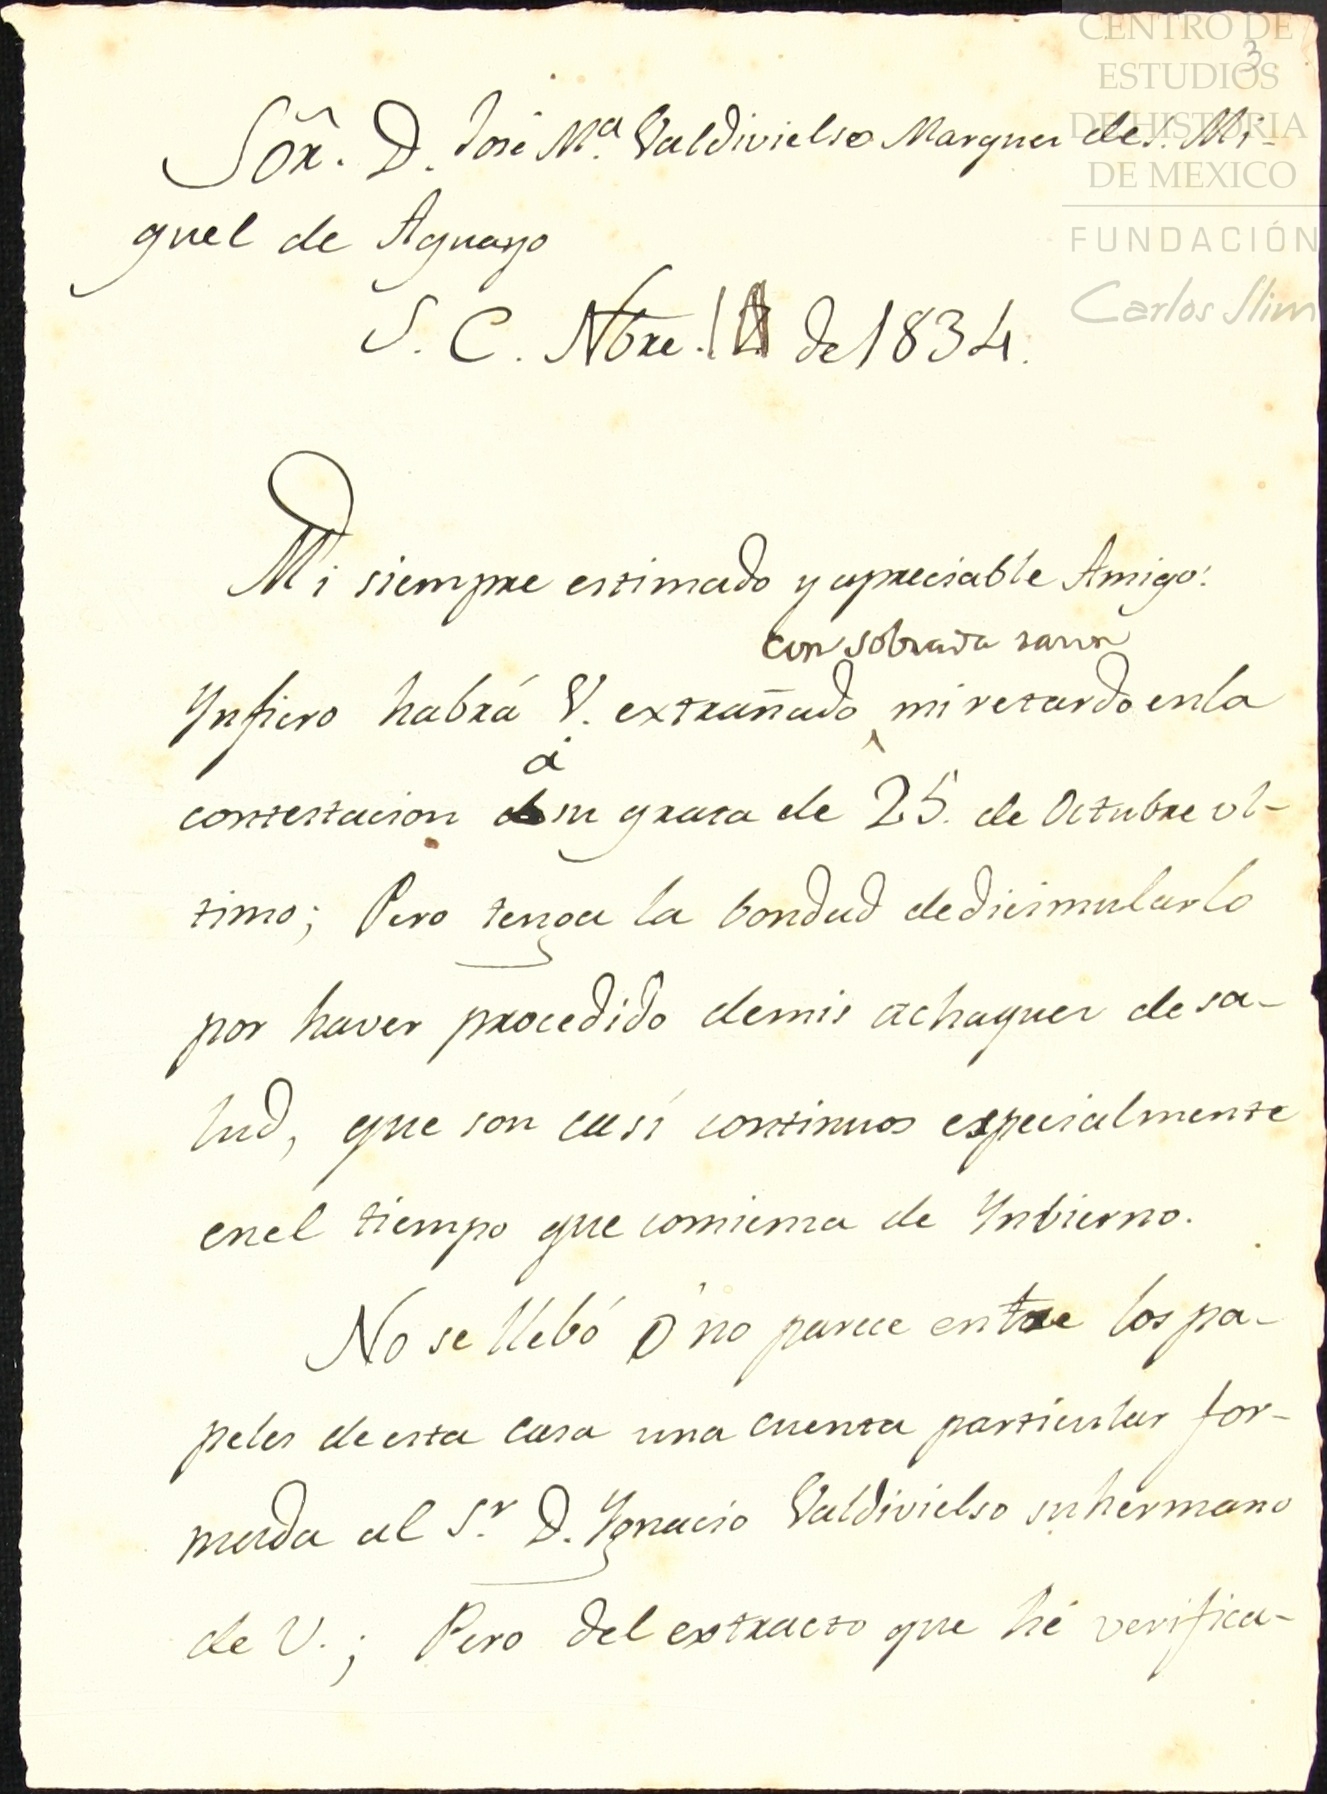 CENTRO DE
ESTUDIOS
DE HISTORIA
DE MEXICO
FUNDACIÓN
Carlos Slim
3
Sōr. D. José Mª. Valdivielso Marques de S. Mi-
guel de Aguayo
S. C. Nbre. 1 de 1834.
Mi siempre estimado y apreciable Amigo:
con sobrada razon
Ynfiero habrá V. extrañado ‸ mi retardo en la
á
contestacion su grata de 25. de Octubre ul-
timo; Pero tenga la bondad de dicimularlo
por haver procedido de mis achaques de sa-
lud, que son casi continuos especialmente
en el tiempo que comienza de Ynbierno.
No se llebó ó no parece entre los pa-
peles de esta casa una cuenta particular for-
mada al Sr. D. Ygnacio Valdivielso su hermano
de V.; Pero del extracto que hé verifica-